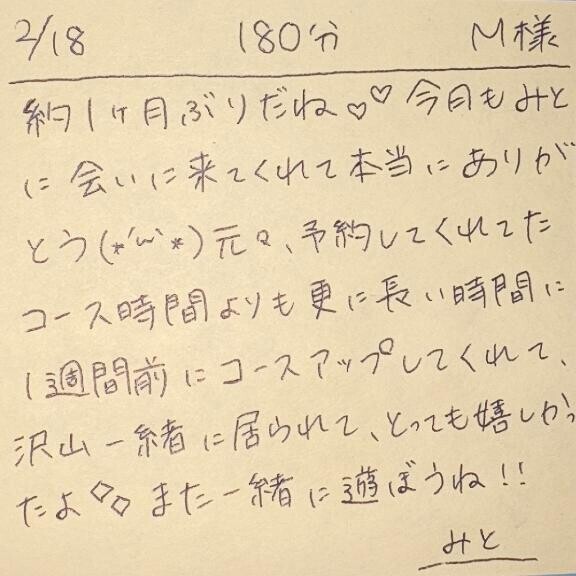 2/18 180分 M様
約1ヶ月ぶりだね♡♡今日もみと
に会いに来てくれて本当にありが
とう(*´ω`*)元々、予約してくれてた
コース時間よりも更に長い時間に
1週間前にコースアップしてくれて、
沢山一緒に居られて、とっても嬉しかっ
たよ◇◇また一緒に遊ぼうね!!
みと